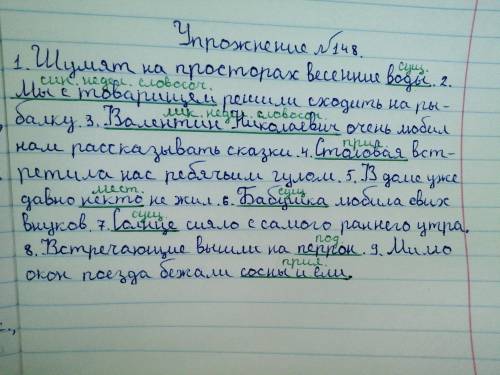 Упрожнение №148.
сущ.
1. Шумят на просторах весенние воды. 2.
син. недел. словосоч.
Мы с товарищем решили сходить на ры-
син. недел. словосоч.
балку. 3. Валентин Николаевич очень любил
прил.
нам рассказывать сказки. 4. Столовая вст-
ретила нас ребячьим гулом. 5. В доме уже
мест. сущ.
давно некто не жил. 6. Бабушка любила своих
сущ.
внуков. 7. Солнце сияло с самого раннего утра.
под.
8. Встречающие вышли на перрон. 9. Мимо
прил.
окон поезда бежали сосны и ели.